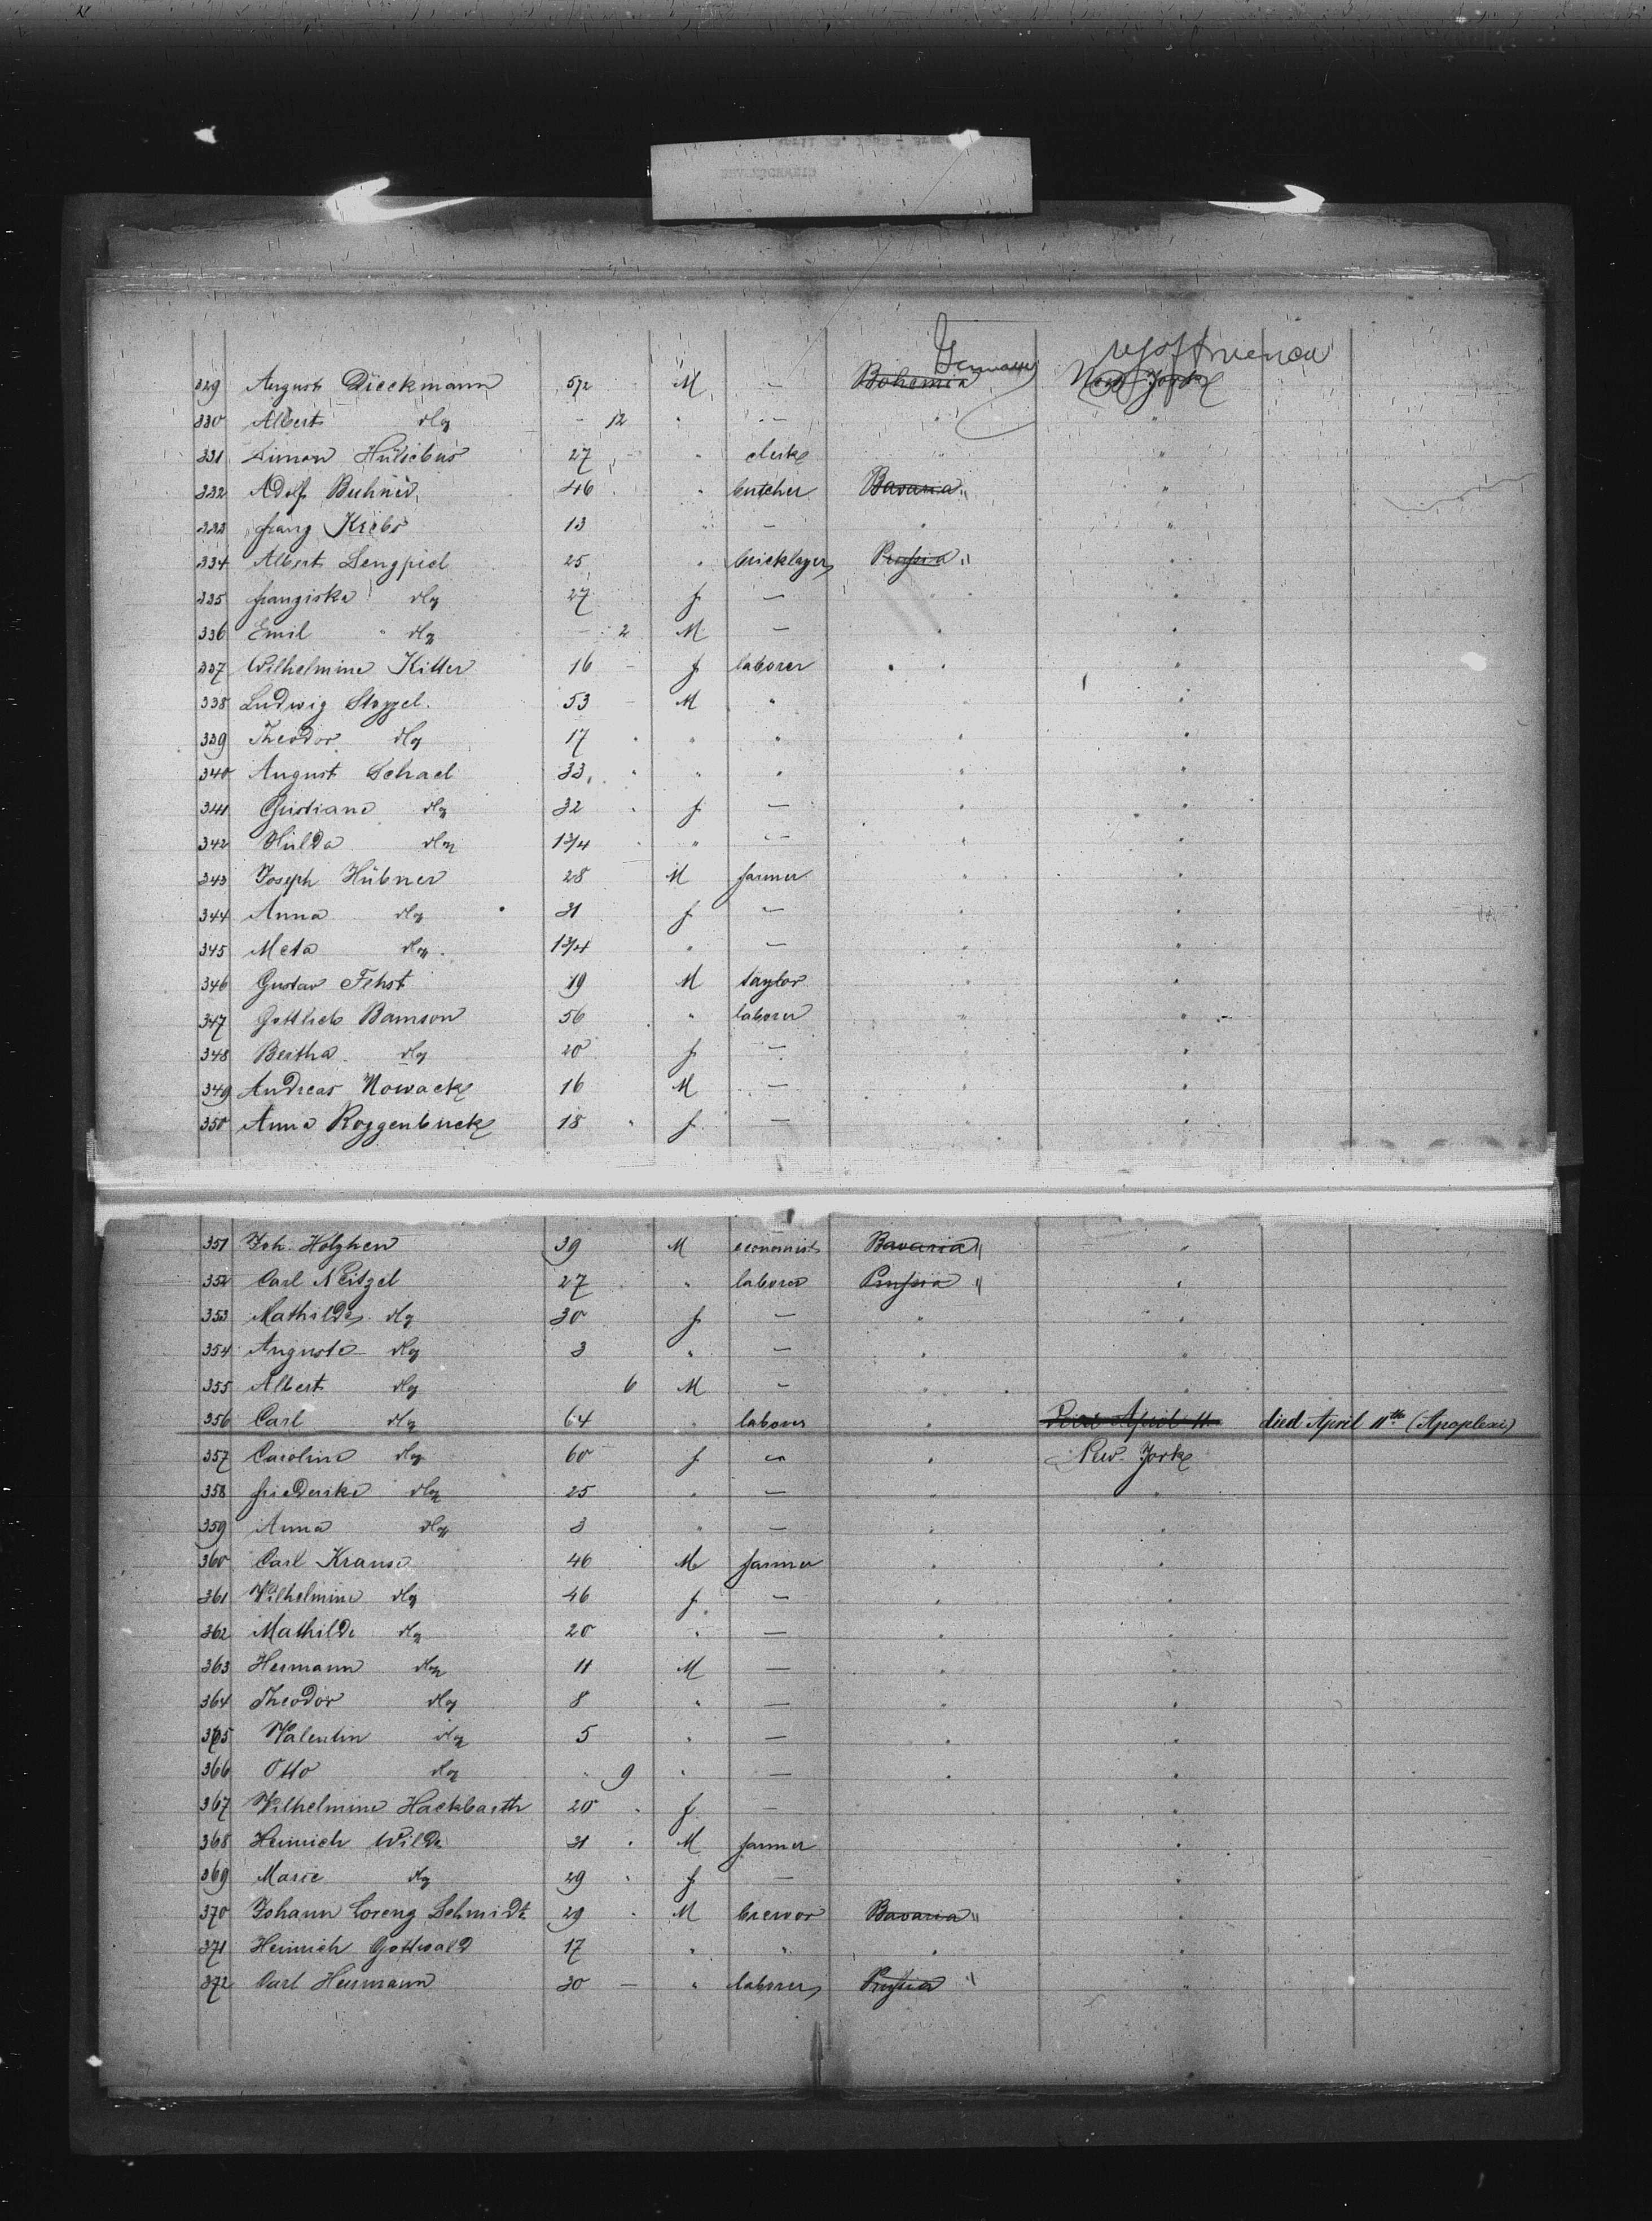 Germany U S of America
329 August Dieckmann 5/2 M — Bohemia New York
330 Albert dto - 12 " — " "
331 Simon Hülsebus 27 " clerk " "
332 Adolf 46 " butcher Bavaria " "
333 Franz Krebs 13 " — " "
334 Albert Lengpiel 25 " bricklayer Prussia " "
335 Franziska dto 27 f — " "
336 Emil " dto - 2 M — " "
337 Wilhelmine Kitter 16 f laborer " "
338 Ludwig Stoppel 53 M " " "
339 Theodor dto 17 " " " "
340 August Schael 33 " " " "
341 Christiane dto 32 f — " "
342 Hulda dto 1 3/4 " — " "
343 Joseph Hübner 28 M farmer " "
344 Anna dto 31 f — " "
345 Meta dto 1 3/4 " — " "
346 Gustav Fehst 19 M taylor " "
347 Gottlieb Bamson 56 " laborer " "
348 Bertha dto 20 f — "
349 Andreas Nowack 16 M — " "
350 Anna Roggenbuck 18 f — " "
351 Joh. Holzhen 39 M economist Bavaria " "
352 Carl Neitzel 27 " laborer Prussia " "
353 Mathilde dto 30 f — " "
354 Auguste dto 3 " — " "
355 Albert dto 6 M — " "
356 Carl dto 64 " laborer " April 11 died April 11th (Apoplexie)
357 Caroline dto 60 f — " New York
358 Friederike dto 25 " — " "
359 Anna dto 3 " — " "
360 Carl Krause 46 M farmer " "
361 Wilhelmine dto 46 f — " "
362 Mathilde dto 20 " — " "
363 Hermann dto 11 M — " "
364 Theodor dto 8 " — " "
365 Valentin dto 5 " — " "
366 Otto dto " 9 " — " "
367 Wilhelmine Hackbarth 20 f — "
368 Heinrich Wilde 31 M farmer "
369 Marie dto 29 f — "
370 Johann Lorenz Schmidt 29 M brewer Bavaria " "
371 Heinrich Gottwald 17 " " " "
372 Carl Hermann 30 — " laborer Prussia " "